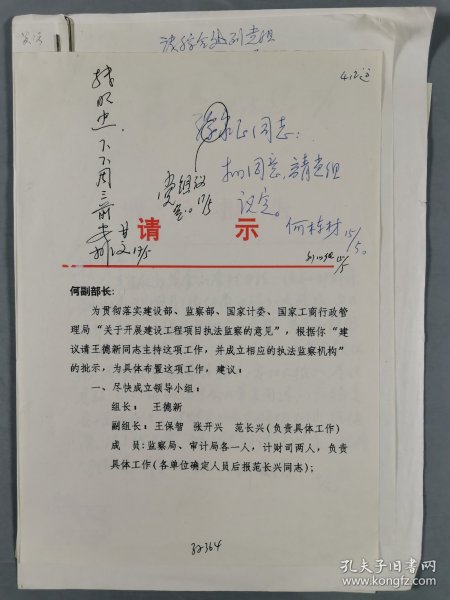 请示
何副部长:
为贯彻落实建设部、监察部、国家计委、国家工商行政管
理局“关于开展建设工程项目执法监察的意见”,根据你“建
议请王德新同志主持这项工作,并成立相应的执法监察机构”
的批示,为具体布置这项工作,建议:
一、尽快成立领导小组:
组长: 王德新
副组长: 王保智 张开兴 范长兴(负责具体工作)
成 员:监察局、审计局各一人,计财司两人,负责
具体工作(各单位确定人员后报范长兴同志);
同志:
拟同意,請党组
议定。
何栋材 15/5.
党组议
定。17/5
孔夫子旧书网
www.kongfz.com